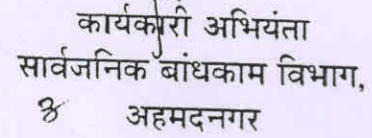 कार्यकारी अभियंता
सार्वजनिक बांधकाम विभाग,
अहमदनगर